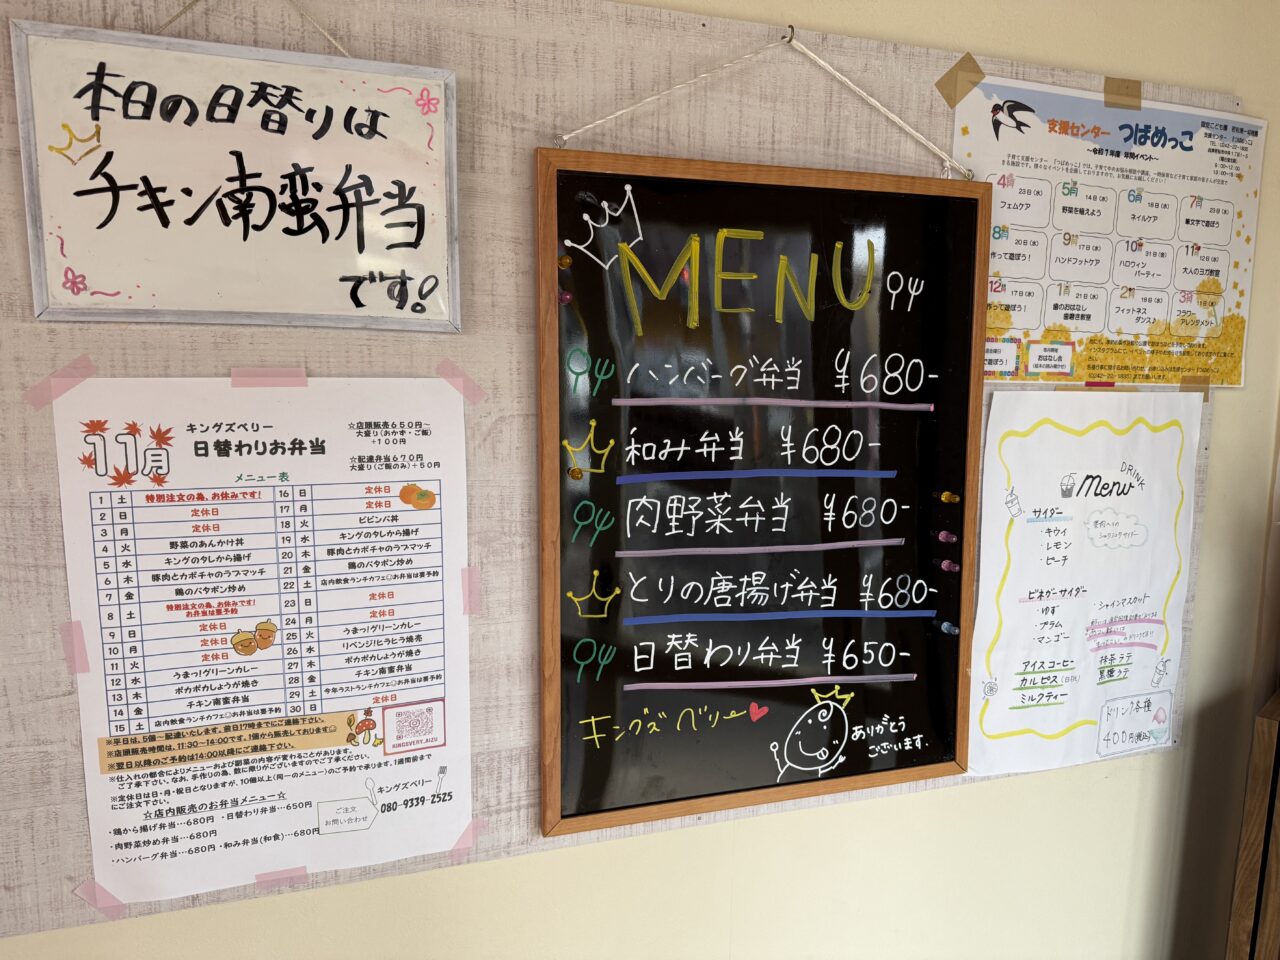 本日の日替りは
チキン南蛮弁当
です!
11月
キングズベリー
日替わりお弁当
☆店頭販売650円~
大盛り(おかず・ご飯)
+100円
☆配達弁当670円
大盛り(ご飯のみ)+50円
メニュー表
1 土 特別注文の為、お休みです!
2 日 定休日
3 月 定休日
4 火 野菜のあんかけ丼
5 水 キングのタレから揚げ
6 木 豚肉とカボチャのラフマッチ
7 金 鶏のバタポン炒め
8 土 特別注文の為、お休みです!
お弁当は要予約
9 日 定休日
10 月 定休日
11 火 定休日
12 水 うまっ!グリーンカレー
13 木 ポカポカしょうが焼き
14 金 チキン南蛮弁当
15 土 店内飲食ランチカフェ☺お弁当は要予約
16 日 定休日
17 月 定休日
18 火 ビビンバ丼
19 水 キングのタレから揚げ
20 木 豚肉とカボチャのラフマッチ
21 金 鶏のバタポン炒め
22 土 店内飲食ランチカフェ☺お弁当は要予約
23 日 定休日
24 月 定休日
25 火 うまっ!グリーンカレー
26 水 リベンジ!ヒラヒラ焼売
27 木 ポカポカしょうが焼き
28 金 チキン南蛮弁当
29 土 今年ラストランチカフェ☺お弁当は要予約
30 日 定休日
※平日は、5個~配達いたします。前日17時までにご連絡下さい。
※店頭販売時間は、11:30~14:00です。1個から販売しております☺
※翌日以降のご予約は14:00以降にご連絡下さい。
※仕入れの都合によりメニューおよび副菜の内容が変わることがあります。
ご了承下さい。なお、手作りの為、数に限りがございますのでご了承ください。
※定休日は日・月・祝日となりますが、10個以上(同一のメニュー)のご予約で承ります。1週間前まで
にご注文下さい。
KINGSVERY.AIZU
☆店内販売のお弁当メニュー☆
・鶏から揚げ弁当…680円 ・日替わり弁当…650円
・肉野菜炒め弁当…680円
・ハンバーグ弁当…680円 ・和み弁当(和食)…680円
ご注文
お問い合わせ
キングズベリー
080-9339-2525
MENU
ハンバーグ弁当 ¥680-
和み弁当 ¥680-
肉野菜弁当 ¥680-
とりの唐揚げ弁当 ¥680-
日替わり弁当 ¥650-
キングズベリー
ありがとう
ございます.
支援センター つばめっこ
~令和7年度 年間イベント~
4月 23日(水)
フェムケア
5月 14日(水)
野菜を植えよう
6月 18日(水)
ネイルケア
7月 23日(水)
筆文字で遊ぼう
8月 20日(水)
作って遊ぼう!
9月 17日(水)
ハンドフットケア
10月 31日(金)
ハロウィン
パーティー
11月 12日(水)
大人のヨガ教室
12月 17日(水)
作って遊ぼう!
1月 21日(水)
歯のおはなし
歯磨き教室
2月 18日(水)
フィットネス
ダンス♪
3月 11日(水)
フラワー
アレンジメント
おはなし会
DRINK
Menu
サイダー
・キウイ
・レモン
・ピーチ
果肉入りの
シュワシュワサイダー
ビネガーサイダー
・ゆず
・プラム
・マンゴー
・シャインマスカット
アイスコーヒー
カルピス
ミルクティー
抹茶ラテ
黒糖ラテ
ドリンク各種
400円(税込)